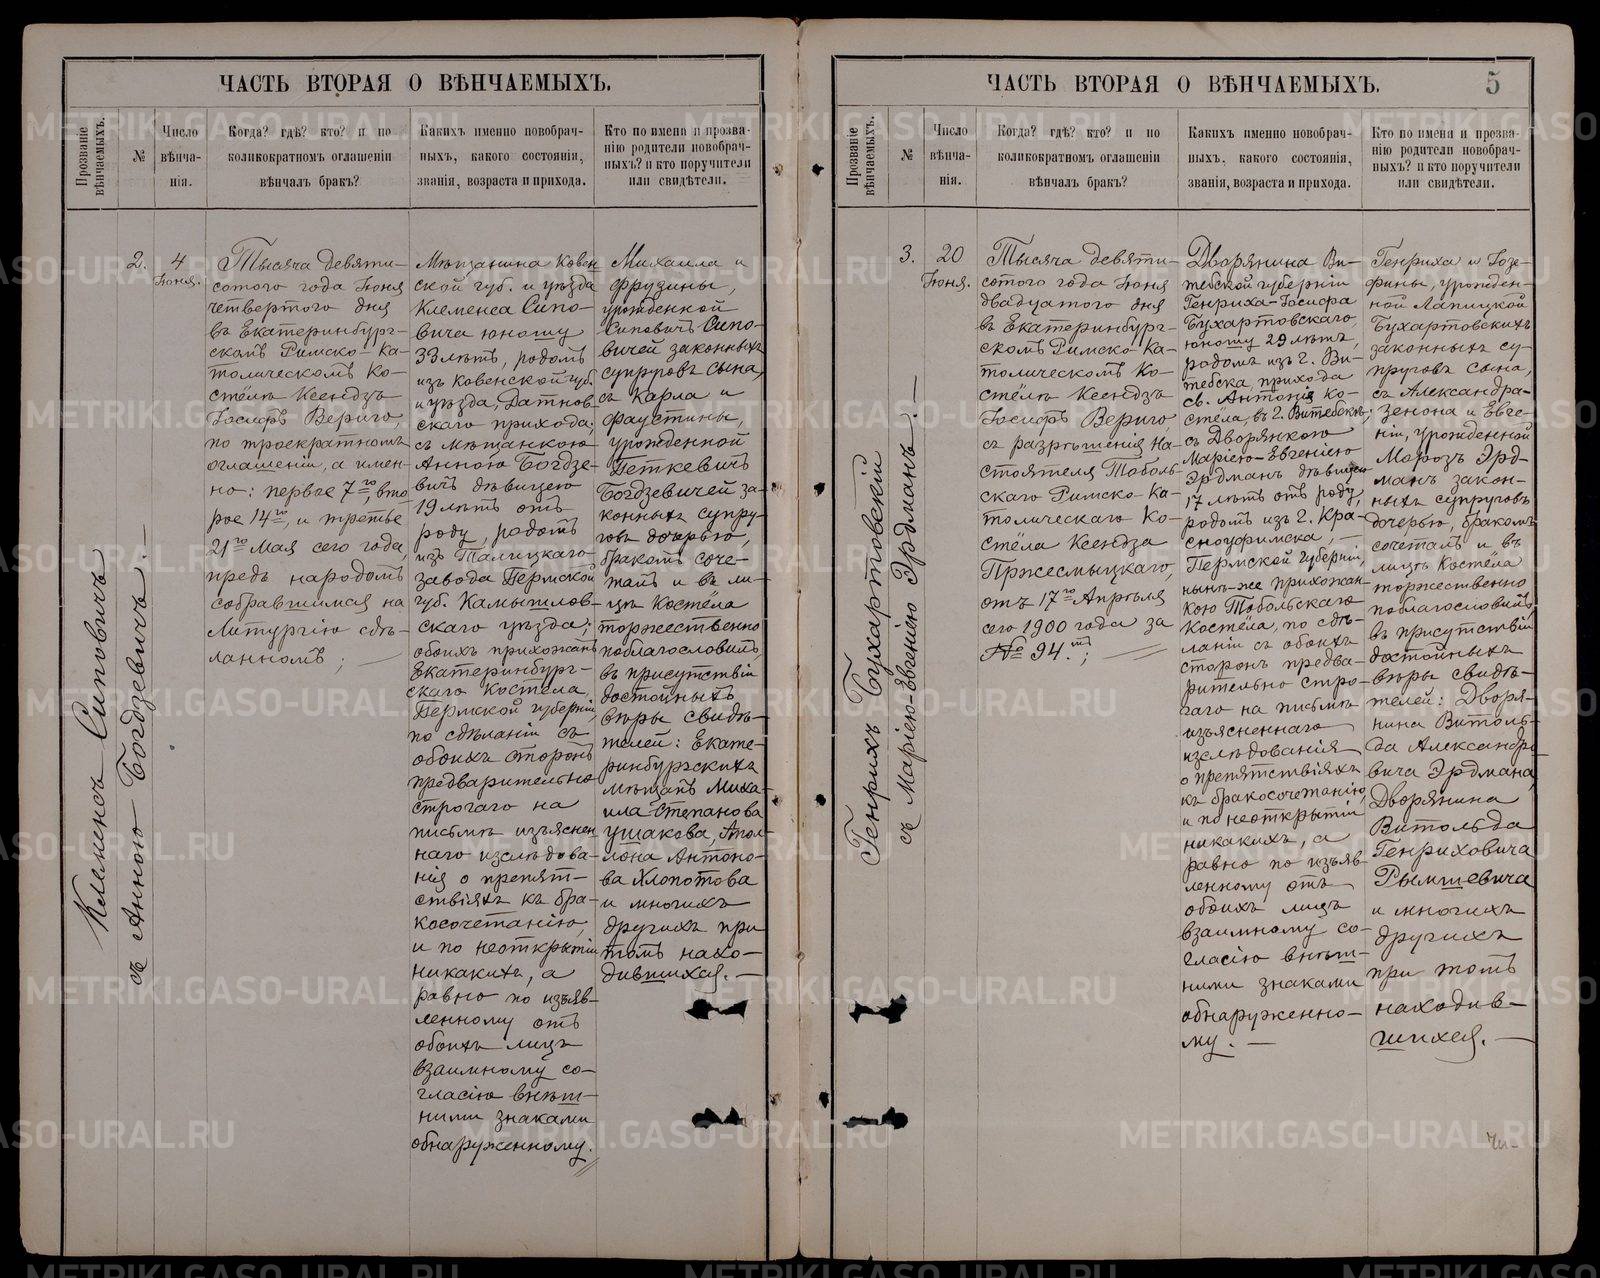 ЧАСТЬ ВТОРАЯ О ВѢНЧАЕМЫХЪ.
Прозваніе
вѣнчаемыхъ.
№
Число
вѣнча-
нія.
Когда? гдѣ? кто? и по
коликократномъ оглашеніи
вѣнчалъ бракъ?
Какихъ именно новобрач-
ныхъ, какого состоянія,
званія, возраста и прихода.
Кто по имени и прозва-
нію родители новобрач-
ныхъ? и кто поручители
или свидѣтели.
Клеменсъ Сиповичъ
съ Анною Богдзевичъ.—
2.
4
Іюня.
Тысяча девяти-
сотого года Іюня
четвертого дня
въ Екатеринбург-
скомъ Римско-Ка-
толическомъ Ко-
стёлѣ Ксендзъ
Іосифъ Вериго,
по троекратномъ
оглашеніи, а имен-
но: первое 7го, вто
рое 14го, и третье
21го Мая сего года,
предъ народомъ
собравшимся на
Литургію сдѣ-
ланномъ; —
Мѣщанина Ковен
ской губ. и уѣзда
Клеменса Сипо-
вича юношу
33 лѣтъ, родомъ
изъ Ковенской губ.
и уѣзда, Датнов-
скаго прихода;
съ мѣщанкою
Анною Богдзе-
вичъ дѣвицею
19 лѣтъ отъ
роду, родомъ
изъ Талицкаго
завода Пермской
губ. Камышлов-
скаго уѣзда;
обоихъ прихожанъ
Екатеринбург-
скаго Костёла,
Пермской губерніи,
по сдѣланіи съ
обоихъ сторонъ
предварительно
строгаго на
письмѣ изъяснен
наго изслѣдова-
нія о препят-
ствіяхъ къ бра-
косочетанію,
и по неоткрытіи
никакихъ, а
равно по изъяв-
ленному отъ
обоихъ лицъ
взаимному со-
гласію внѣш-
ними знаками
обнаруженному.
Михаила и
Фрузины,
урожденной
Сиповичъ Сипо-
вичей законныхъ
супруговъ сына,
съ Карла и
Фаустины,
урожденной
Петкевичъ
Богдзевичей за-
конныхъ супру-
говъ дочерью,
бракомъ соче-
талъ и въ ли-
цѣ Костёла
торжественно
поблагословилъ,
въ присутствіи
достойныхъ
вѣры свидѣ-
телей: Екате-
ринбургскихъ
мѣщанъ Миха-
ила Степанова
Ушакова, Апол-
лона Антоно-
ва Хлопотова
и многихъ
другихъ при
томъ нахо-
дившихся.—
ЧАСТЬ ВТОРАЯ О ВѢНЧАЕМЫХЪ.
5
Прозваніе
вѣнчаемыхъ.
№
Число
вѣнча-
нія.
Когда? гдѣ? кто? и по
коликократномъ оглашеніи
вѣнчалъ бракъ?
Какихъ именно новобрач-
ныхъ, какого состоянія,
званія, возраста и прихода.
Кто по имени и прозва-
нію родители новобрач-
ныхъ? и кто поручители
или свидѣтели.
Генрихъ Бухартовскій
съ Маріею-Евгеніею Эрдманъ.—
3.
20
Іюня.
Тысяча девяти-
сотого года Іюня
двадцатого дня
въ Екатеринбург-
скомъ Римско-Ка-
толическомъ Ко-
стёлѣ Ксендзъ
Іосифъ Вериго,
съ разрѣшенія На-
стоятеля Тоболь-
скаго Римско-Ка-
толическаго Ко-
стёла Ксендза
Пржесмыцкаго,
отъ 17го Апрѣля
сего 1900 года за
№ 94.мъ; —
Дворянина Ви-
тебской губерніи
Генриха-Іосифа
Бухартовскаго,
юношу 29 лѣтъ,
родомъ изъ г. Ви-
тебска, прихода
св. Антонія Ко-
стёла, въ г. Витебскѣ;
съ Дворянкою
Маріею-Евгеніею
Эрдманъ дѣвицею
17 лѣтъ отъ роду,
родомъ изъ г. Кра-
сноуфимска, —
Пермской губерніи,
нынѣ-же прихожан
кою Тобольскаго
Костёла, по сдѣ-
ланіи съ обоихъ
сторонъ предва-
рительно стро-
гаго на письмѣ
изъясненнаго
изслѣдованія
о препятствіяхъ
къ бракосочетанію,
и по неоткрытіи
никакихъ, а
равно по изъяв-
ленному отъ
обоихъ лицъ
взаимному со-
гласію внѣш-
ними знаками
обнаруженно-
му. —
Генриха и Іозе-
фины, урожден-
ной Лапицкой
Бухартовскихъ
законныхъ су-
пруговъ сына,
съ Александра-
Зенона и Евге-
ніи, урожденной
Морозъ Эрд-
манъ закон-
ныхъ супруговъ
дочерью, бракомъ
сочеталъ и въ
лицѣ Костёла
торжественно
поблагословилъ,
въ присутствіи
достойныхъ
вѣры свидѣ-
телей: Дворя-
нина Витоль-
да Александро-
вича Эрдмана,
Дворянина
Витольда
Генриховича
Рымшевича
и многихъ
другихъ
при томъ
находив-
шихся. —